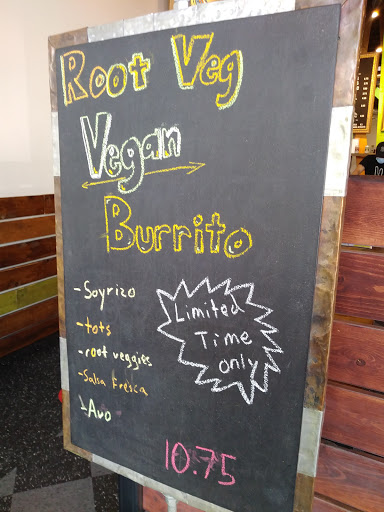 Root Veg
Vegan
Burrito
-Soyrizo
-tots
-root veggies
-Salsa fresca
-Avo
Limited
Time
only
10.75